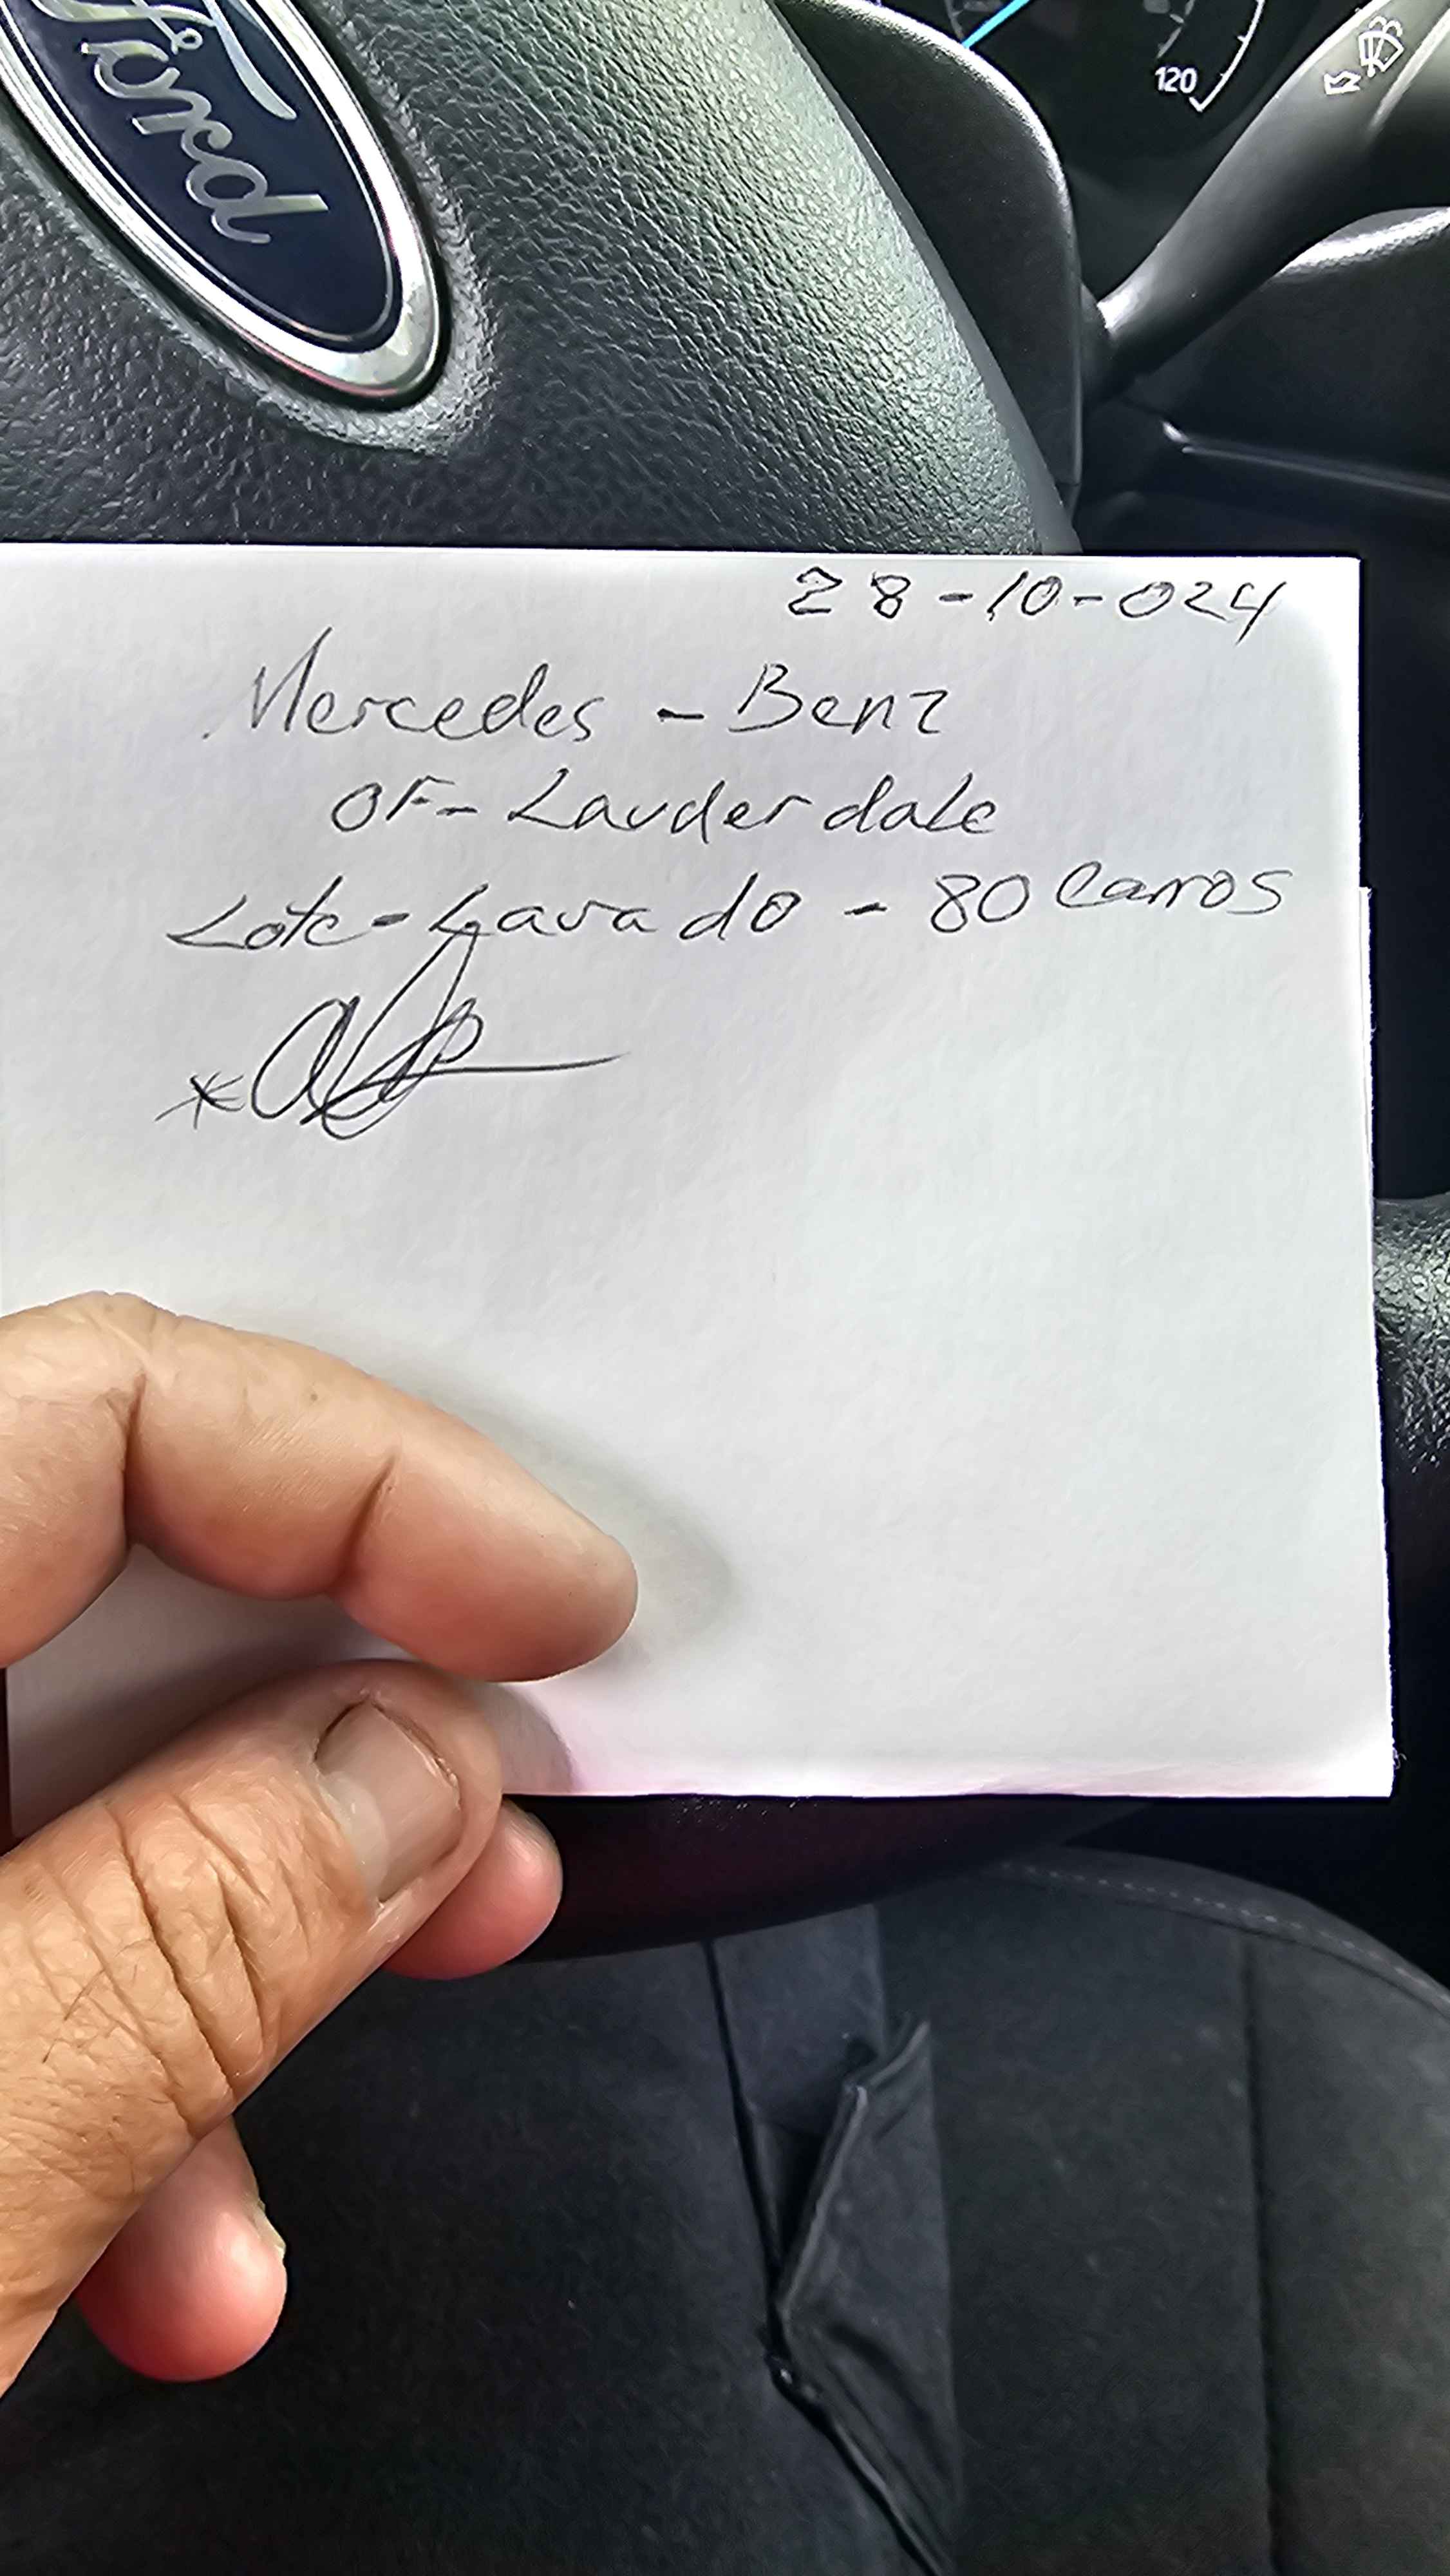 Ford
120
28-10-024
Mercedes - Benz
OF- Lauderdale
Lote - Lavado - 80 Carros
*